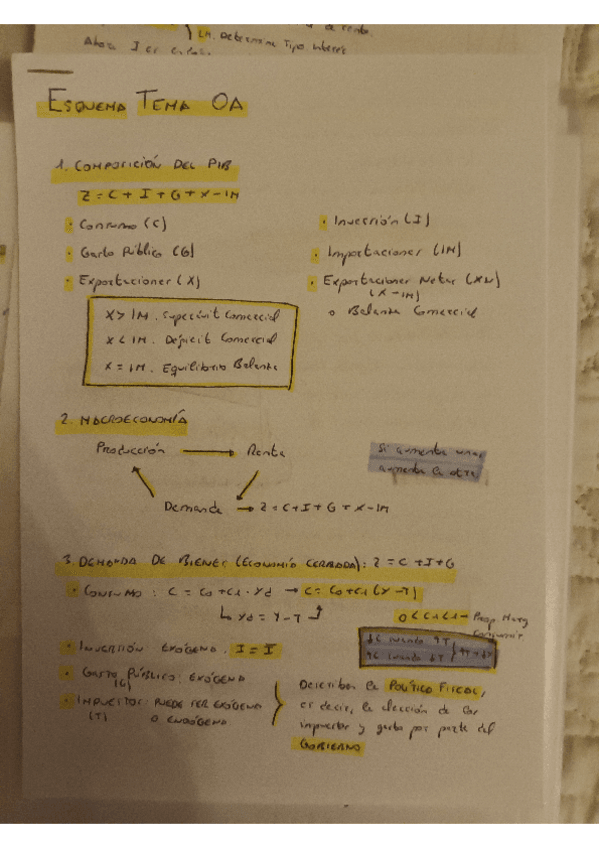 LM. Determine Tipo Interés
Ahora I es
ESQUEMA TEMA 0A
1. COMPOSICIÓN DEL PIB
Z = C + I + G + X - IM
· Consumo (C)
· Inversión (I)
· Gasto Público (G)
· Importaciones (IM)
· Exportaciones (X)
· Exportaciones Netas (XN)
(X - IM)
o Balanza Comercial
X > IM. Superávit Comercial
X < IM. Déficit Comercial
X = IM. Equilibrio Balanza
2. MACROECONOMÍA
Producción → Renta
Si aumenta una,
aumenta la otra
Demanda → Z = C + I + G + X - IM
3. DEMANDA DE BIENES (ECONOMÍA CERRADA): Z = C + I + G
· CONSUMO: C = C0 + C1 · Yd → C = C0 + C1 (Y - T)
↳ Yd = Y - T
0 < C1 < 1 → Prop. Marg
Consumir
↓C cuando ↑T
↑C cuando ↓T
· INVERSIÓN EXÓGENA. I = Ī
· GASTO PÚBLICO: EXÓGENO
(G)
· IMPUESTOS: PUEDE SER EXÓGENO
(T) O ENDÓGENO
Describen la POLÍTICA FISCAL,
es decir, la elección de los
impuestos y gasto por parte del
GOBIERNO